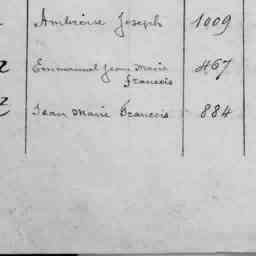 Ambroise Joseph 1009
Emmanuel Jean Marie 467
francois
Jean Marie Francois 884